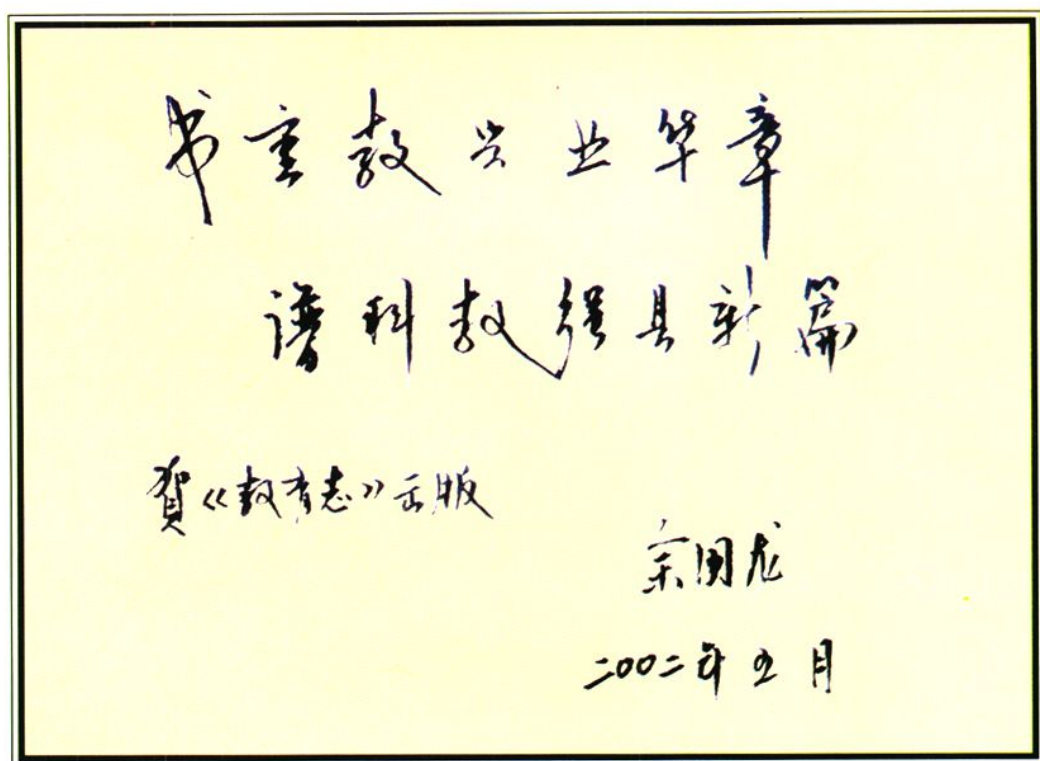 书重教兴业华章
谱科教强县新篇
贺《教育志》出版
宗国龙
二00二年五月